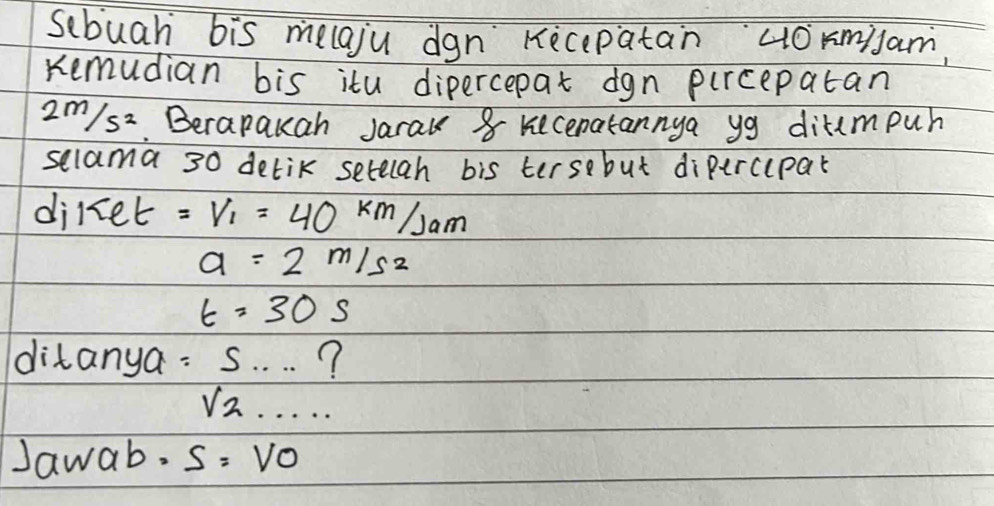 Sebuah bis melaju dgn kecepatan 40 km/jam,
kemudian bis itu dipercepat dgn percepatan
2m/s². Berapakah jarak & kecepatannya yg ditempuh
selama 30 detik setelah bis tersebut dipercepat
diket = V₁ = 40 km/jam
a = 2 m/s²
t = 30 s
ditanya = s.... ?
V2.....
Jawab. s = VO